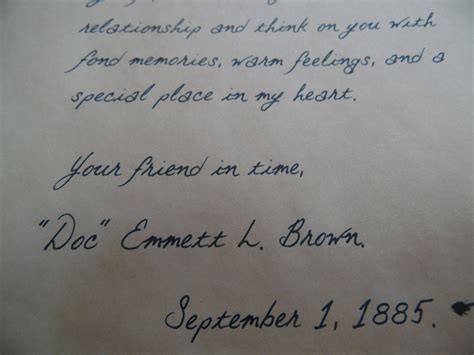 relationship and think on you with
fond memories, warm feelings, and a
special place in my heart.
Your friend in time,
"Doc" Emmett L. Brown.
September 1, 1885.